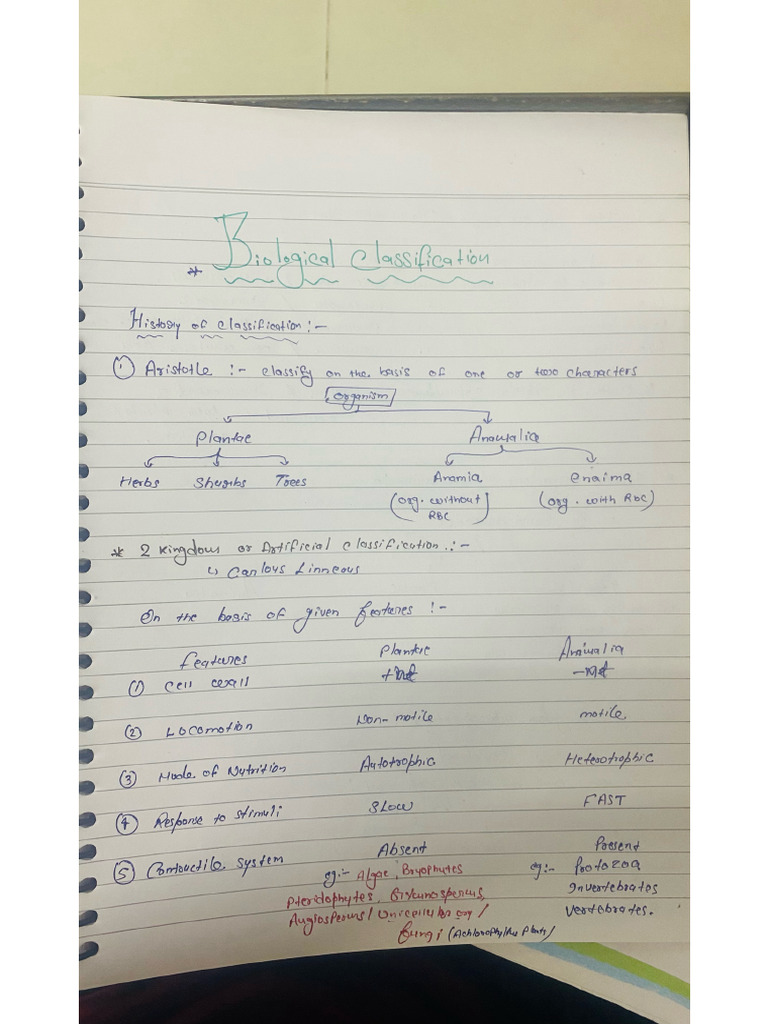 * Biological classification
History of classification :-
① Aristotle :- classify on the basis of one or two characters
organism
Plantae Animalia
Herbs Shurbs Trees Anamia enaima
(org. without RBC) (org. with RBC)
* 2 kingdom or Artificial classification :-
↳ Carlous Linneous
On the basis of given features :-
features Plantae Animalia
① Cell wall +nt -nt
② Locomotion Non-motile motile
③ Mode of Nutrition Autotrophic Heterotrophic
④ Response to stimuli Slow FAST
⑤ Contouctile system Absent Present
eg:- Algae, Bryophytes eg:- Protozoa
Pteridophytes, Gymnosperms, Invertebrates
Angiosperms / Unicellular org / Vertebrates.
Fungi (Achlorophyllus Plants)